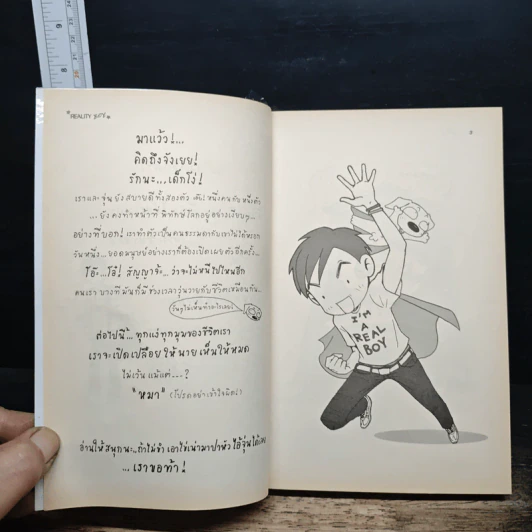 REALITY
มาแว้ว!...
คิดถึงจังเยย!
รักนะ...เด็กโง่!
เราและจุ่น ยังสบายดีทั้งสองตัว เอ๊ย! หนึ่งคนกับหนึ่งตัว
...ยังคงทำหน้าที่พิทักษ์โลกอยู่อย่างเงียบๆ...
อย่างที่บอก! เราทำตัวเป็นคนธรรมดากับเขาไม่ได้หรอก
วันหนึ่ง...ยอดมนุษย์อย่างเราก็ต้องเปิดเผยตัวอีกครั้ง...
โอ๊ะ...โอ๋! สัญญาจ้ะ...ว่าจะไม่หนีไปไหนอีก
คนเรา บางทีมันก็มีช่วงเวลาวุ่นวายกับชีวิตเหมือนกัน..
ต่อไปนี้... ทุกแง่ทุกมุมของชีวิตเรา
เราจะเปิดเปลือย ให้นายเห็นให้หมด
ไม่เว้นแม้แต่...?
"หมา" (โปรดอย่าเข้าใจผิด!)
อ่านให้สนุกนะ..ถ้าไม่ขำ เอาไข่เน่ามาปาหัว ไอ้จุ่นได้เลย
...เราขอท้า!
I'M
A
REAL
BOY